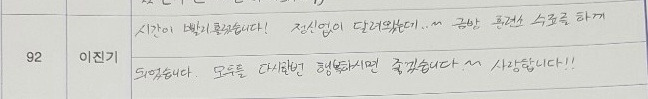 시간이 빨리 흘렀습니다! 정신없이 달려왔는데..~ 금방 훈련소 수료를 하게
92 이진기
되었습니다. 모두들 다시한번 행복하시면 좋겠습니다~ 사랑합니다!!